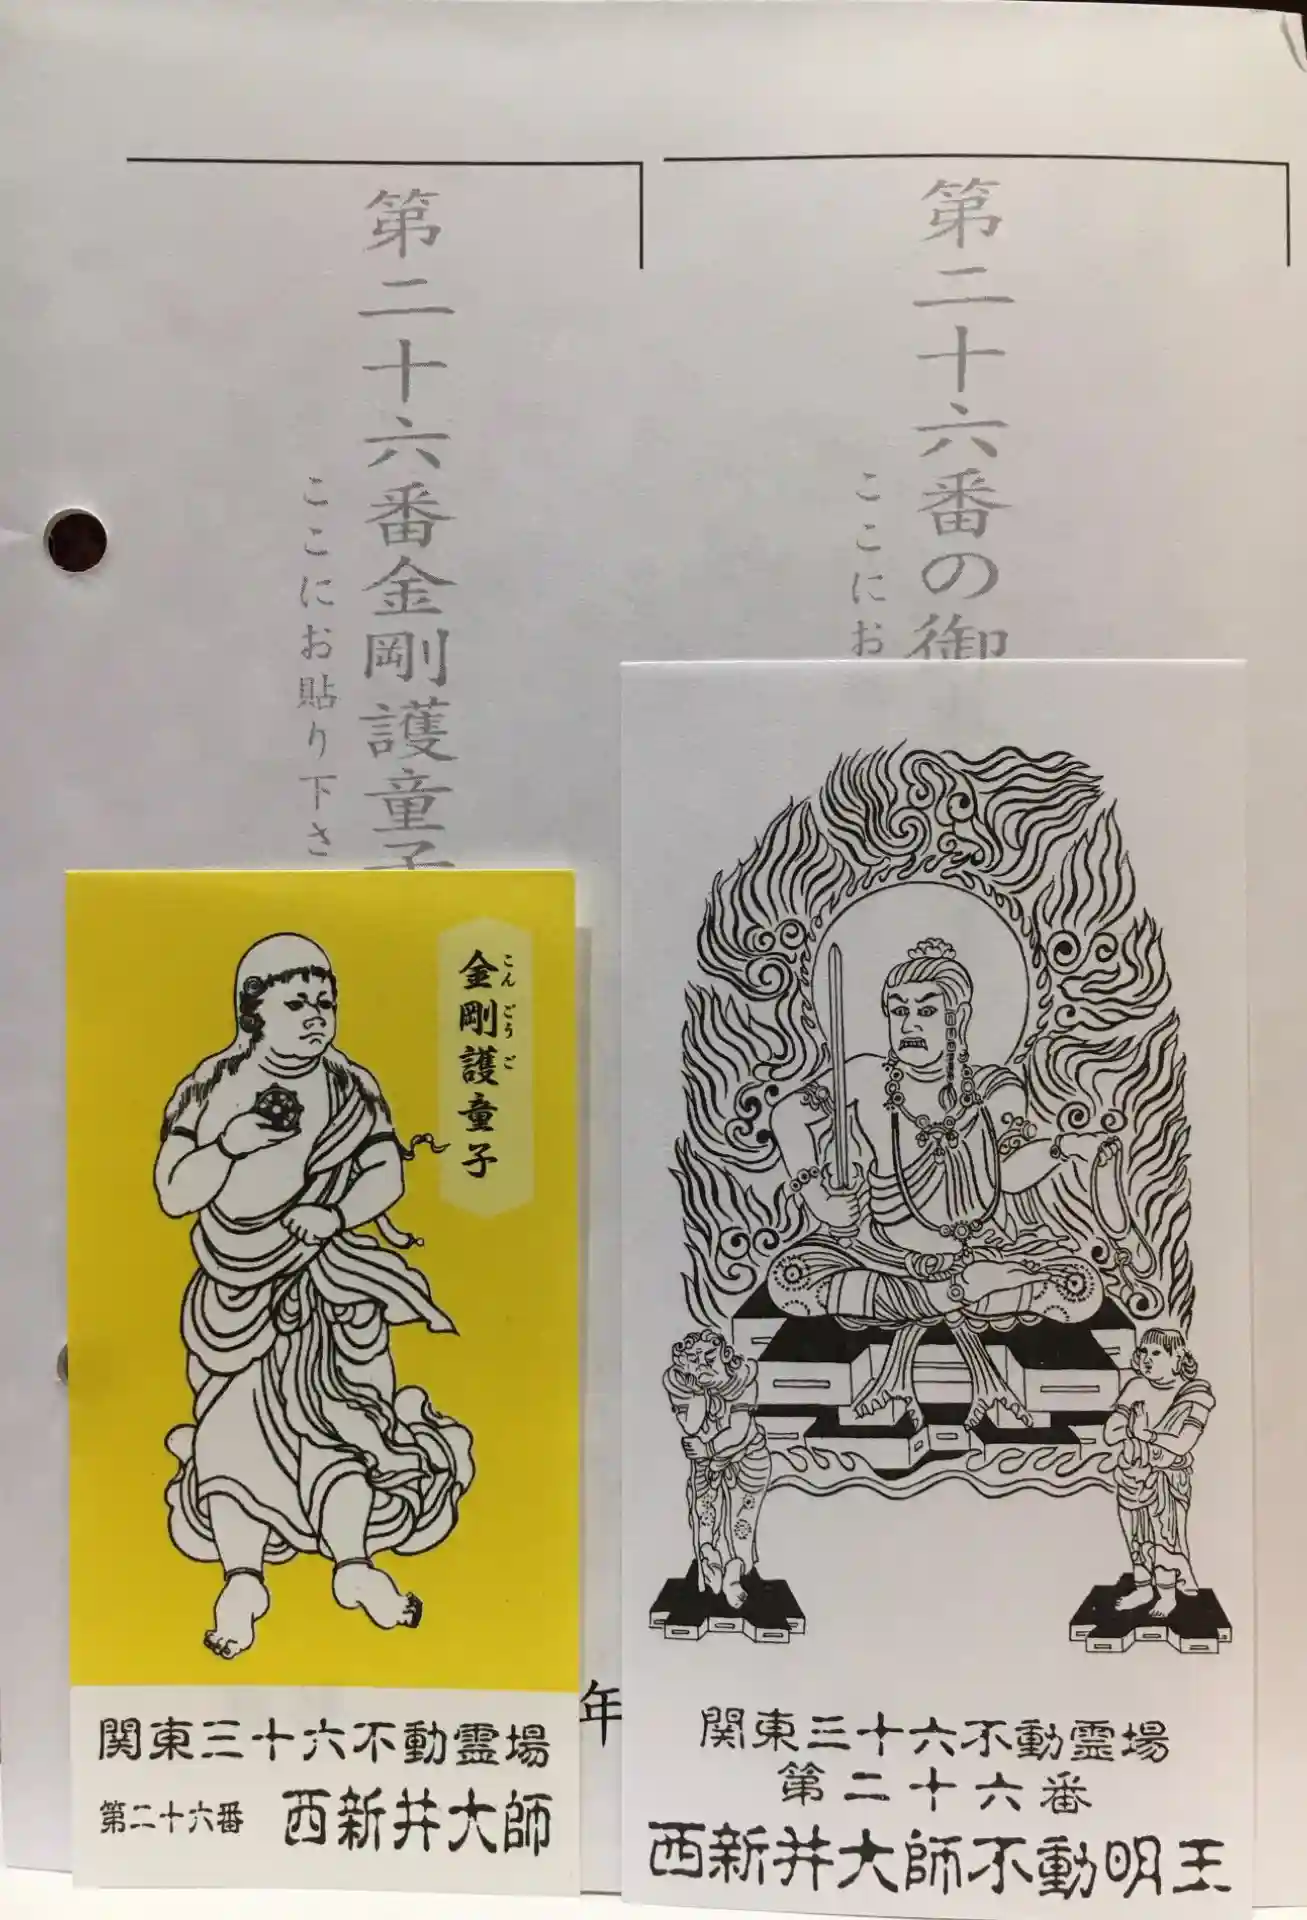 第二十六番の御
ここにお
第二十六番金剛護童子
ここにお貼り下さ
金剛護童子
こんごうご
年
関東三十六不動霊場
第二十六番
西新井大師
関東三十六不動霊場
第二十六番
西新井大師不動明王